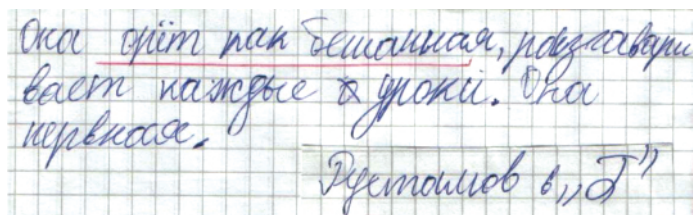 Она орёт как бешанная, разгавари
вает каждые уроки. Она
нервная.
Рустамов 6 „Б”